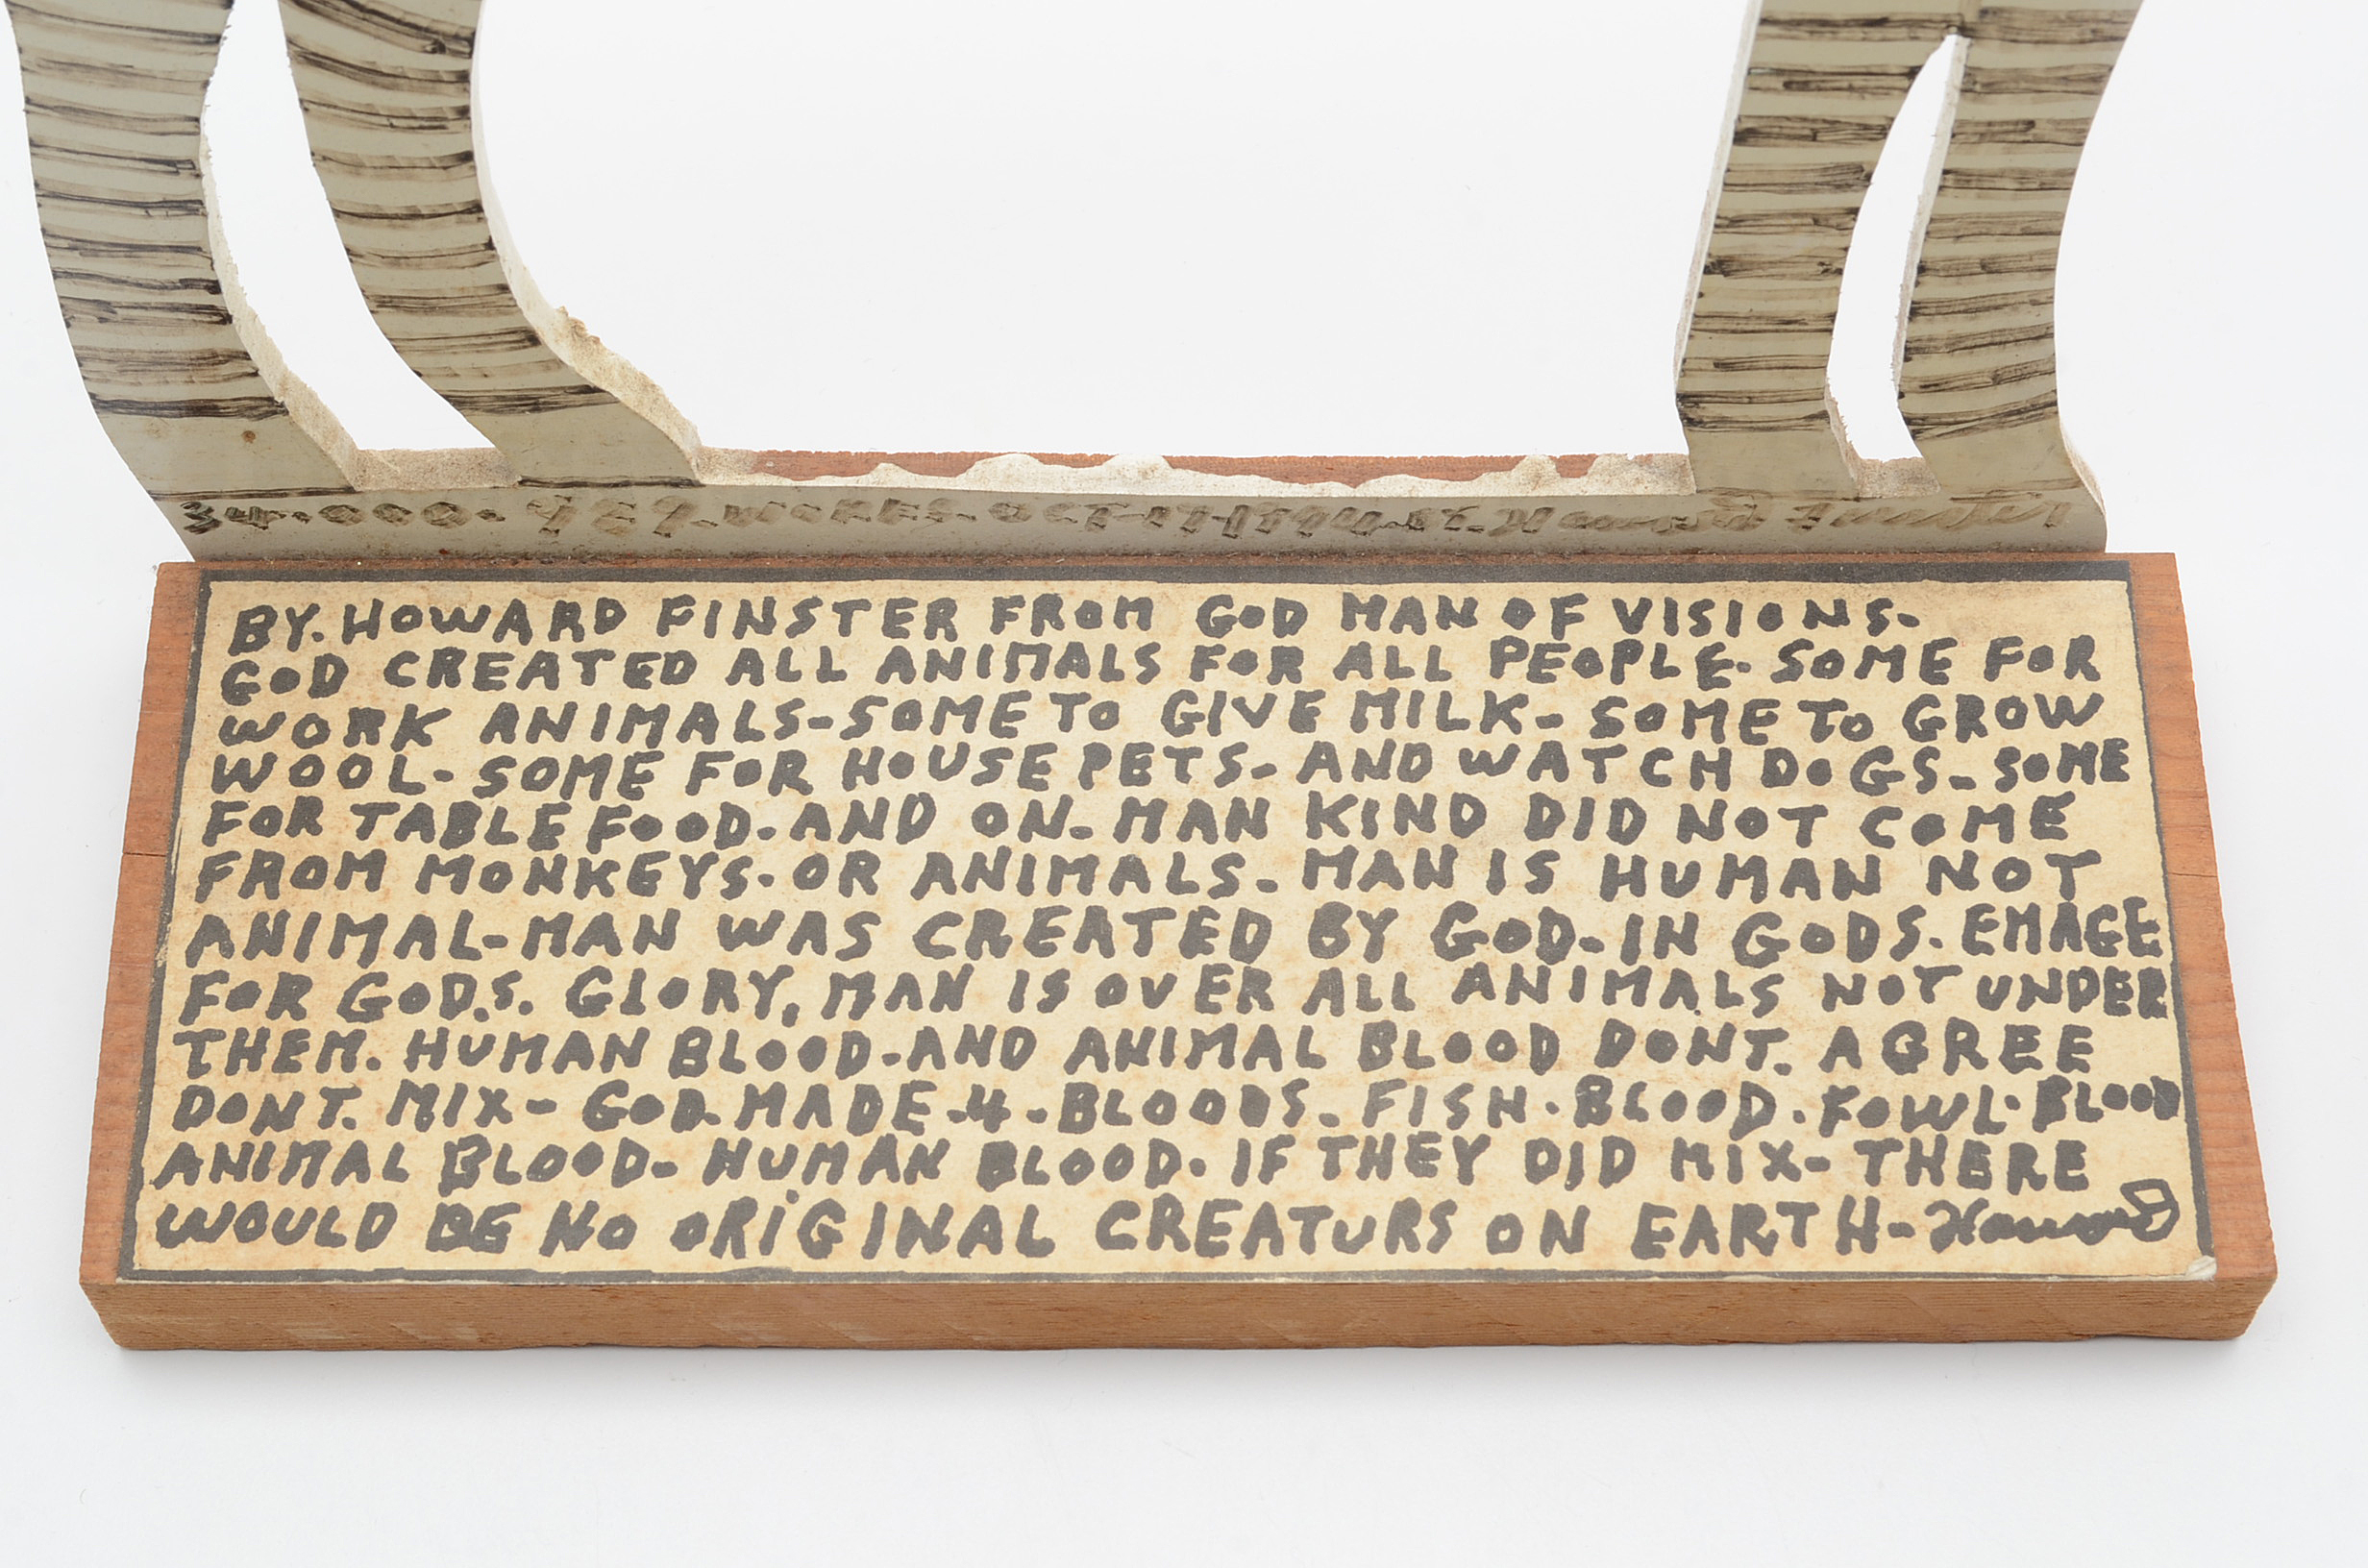 WORKS. Howard Finster
BY. HOWARD FINSTER FROM GOD MAN OF VISIONS.
GOD CREATED ALL ANIMALS FOR ALL PEOPLE. SOME FOR
WORK ANIMALS-SOME TO GIVE MILK- SOME TO GROW
WOOL- SOME FOR HOUSE PETS- AND WATCH DOGS- SOME
FOR TABLE FOOD. AND ON- MAN KIND DID NOT COME
FROM MONKEYS. OR ANIMALS. MAN IS HUMAN NOT
ANIMAL-MAN WAS CREATED BY GOD-IN GODS. EMAGE
FOR GOD.S. GLORY, MAN IS OVER ALL ANIMALS NOT UNDER
THEM. HUMAN BLOOD-AND ANIMAL BLOOD DONT. AGREE
DONT. MIX- GOD-MADE-4-BLOODS- FISH.BLOOD. FOWL.BLOOD
ANIMAL BLOOD- HUMAN BLOOD. IF THEY DID MIX- THERE
WOULD BE NO ORIGINAL CREATURS ON EARTH-Howard